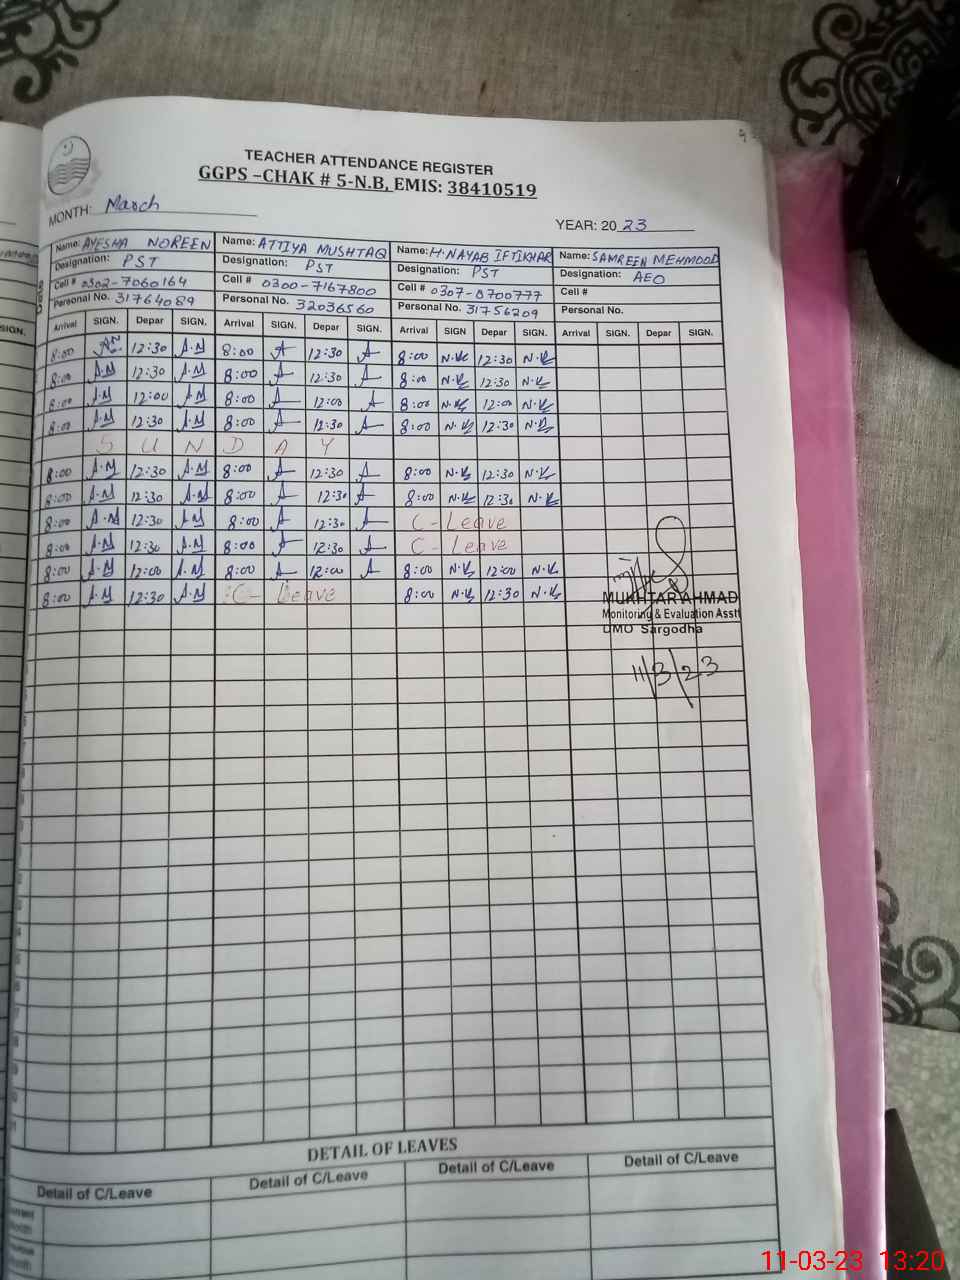 TEACHER ATTENDANCE REGISTER
GGPS –CHAK # 5-N.B, EMIS: 38410519
MONTH: March
YEAR: 2023
Name: AYESHA NOREEN Name: ATTIYA MUSHTAQ Name: H.NAYAB IFTIKHAR Name: SAMREEN MEHMOOD
Designation: PST Designation: PST Designation: PST Designation: AEO
Cell # 0302-7060164 Cell # 0300-7167800 Cell # 0307-8700777 Cell #
Personal No. 31764089 Personal No. 32036560 Personal No. 31756209 Personal No.
SIGN. Arrival SIGN. Depar SIGN. Arrival SIGN. Depar SIGN. Arrival SIGN Depar SIGN. Arrival SIGN. Depar SIGN.
8:00 12:30 A.N 8:00 A 12:30 A 8:00 N.K 12:30 N.K
8:00 A.N 12:30 A.N 8:00 A 12:30 A 8:00 N.K 12:30 N.K
8:00 A.N 12:00 A.N 8:00 A 12:00 A 8:00 N.K 12:00 N.K
8:00 A.N 12:30 A.N 8:00 A 12:30 A 8:00 N.K 12:30 N.K
S U N D A Y
8:00 A.N 12:30 A.N 8:00 A 12:30 A 8:00 N.K 12:30 N.K
8:00 A.N 12:30 A.N 8:00 A 12:30 A 8:00 N.K 12:30 N.K
8:00 A.N 12:30 A.N 8:00 A 12:30 A C-Leave
8:00 A.N 12:30 A.N 8:00 A 12:30 A C-Leave
8:00 A.N 12:00 A.N 8:00 A 12:00 A 8:00 N.K 12:00 N.K
8:00 A.N 12:30 A.N C-Leave 8:00 N.K 12:30 N.K
MUKHTAR AHMAD
Monitoring & Evaluation Asstt
DMO Sargodha
11/3/23
DETAIL OF LEAVES
Detail of C/Leave Detail of C/Leave Detail of C/Leave Detail of C/Leave
11-03-23 13:20